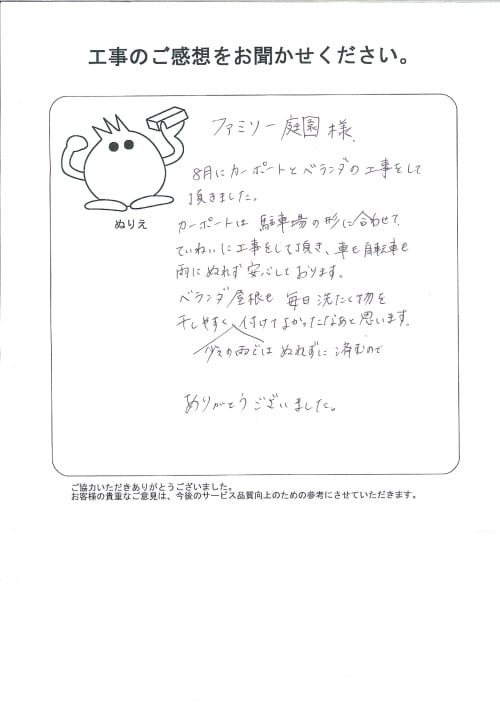 工事のご感想をお聞かせください。
ぬりえ
ファミリー庭園 様
8月にカーポートとベランダの工事をして
頂きました。
カーポートは 駐車場の形に合わせて、
ていねいに工事をして頂き、車も自転車も
雨にぬれず安心しております。
ベランダ屋根も 毎日洗たく物を
干しやすく 付けてよかったなあと思います。
少々の雨ではぬれずに済むので
ありがとうございました。
ご協力いただきありがとうございました。
お客様の貴重なご意見は、今後のサービス品質向上のための参考にさせていただきます。